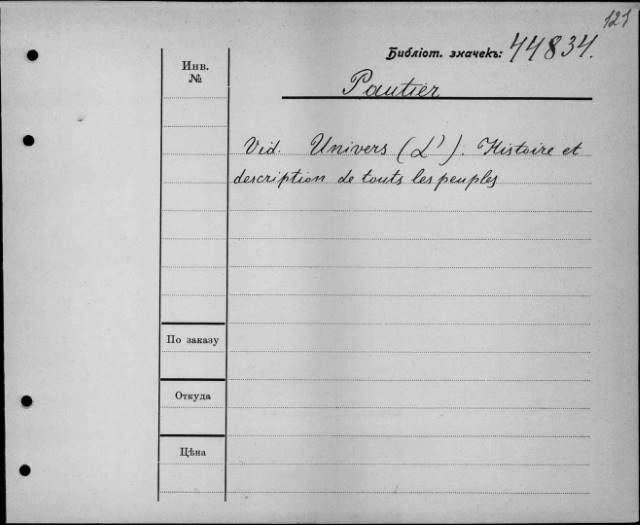 121
Библіот. значекъ: 44834.
Инв.
№
Pautier
Vid. Univers (L'). Histoire et
description de touts les peuples
По заказу
Откуда
Цѣна